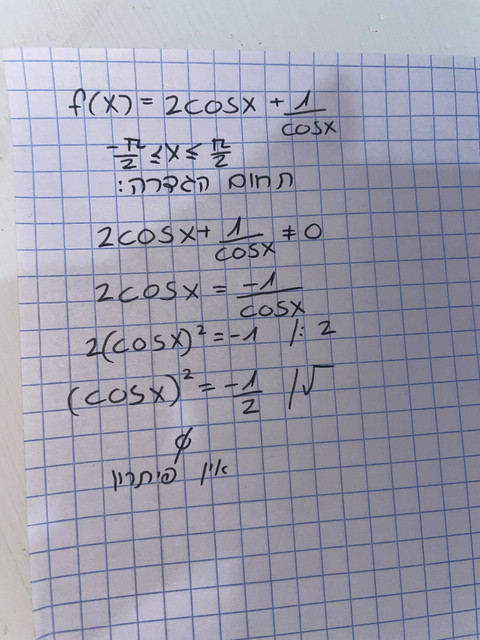 f(x) = 2cosx + 1/cosx
-π/2 ≤ x ≤ π/2
תחום הגדרה:
2cosx + 1/cosx ≠ 0
2cosx = -1/cosx
2(cosx)² = -1 /: 2
(cosx)² = -1/2 /√
∅
אין פיתרון